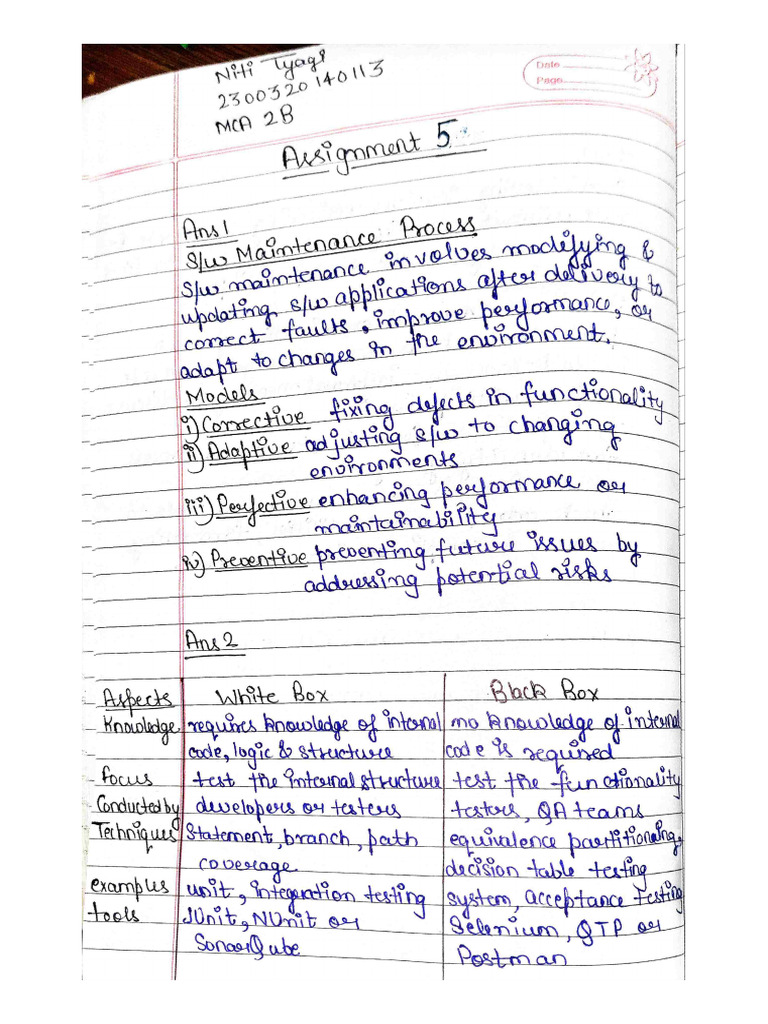 Niti Tyagi
2300320140113
MCA 2B
Date
Page
Assignment 5
Ans1
S/w Maintenance Process
S/w maintenance involves modifying &
updating s/w applications after delivery to
correct faults, improve performance, or
adapt to changes in the environment.
Models
i) Corrective fixing defects in functionality
ii) Adaptive adjusting s/w to changing
environments
iii) Perfective enhancing performance or
maintainability
iv) Preventive preventing future issues by
addressing potential risks
Ans 2
Aspects White Box Black Box
Knowledge requires knowledge of internal no knowledge of internal
code, logic & structure code is required
focus test the internal structure test the functionality
Conducted by developers or testers testers, QA teams
Techniques Statement, branch, path equivalence partitioning,
coverage decision table testing
examples unit, integration testing system, acceptance testing
tools JUnit, NUnit or Selenium, QTP or
SonarQube Postman